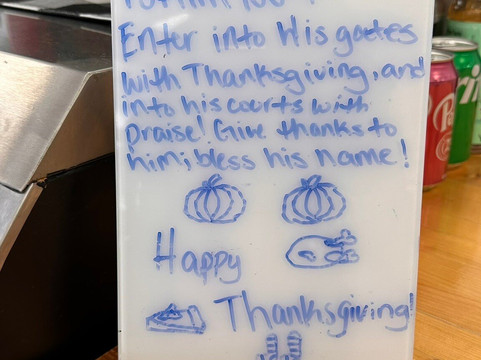 Enter into His gates
with Thanksgiving, and
into his courts with
praise! Give thanks to
him; bless his name!
Happy
Thanksgiving!